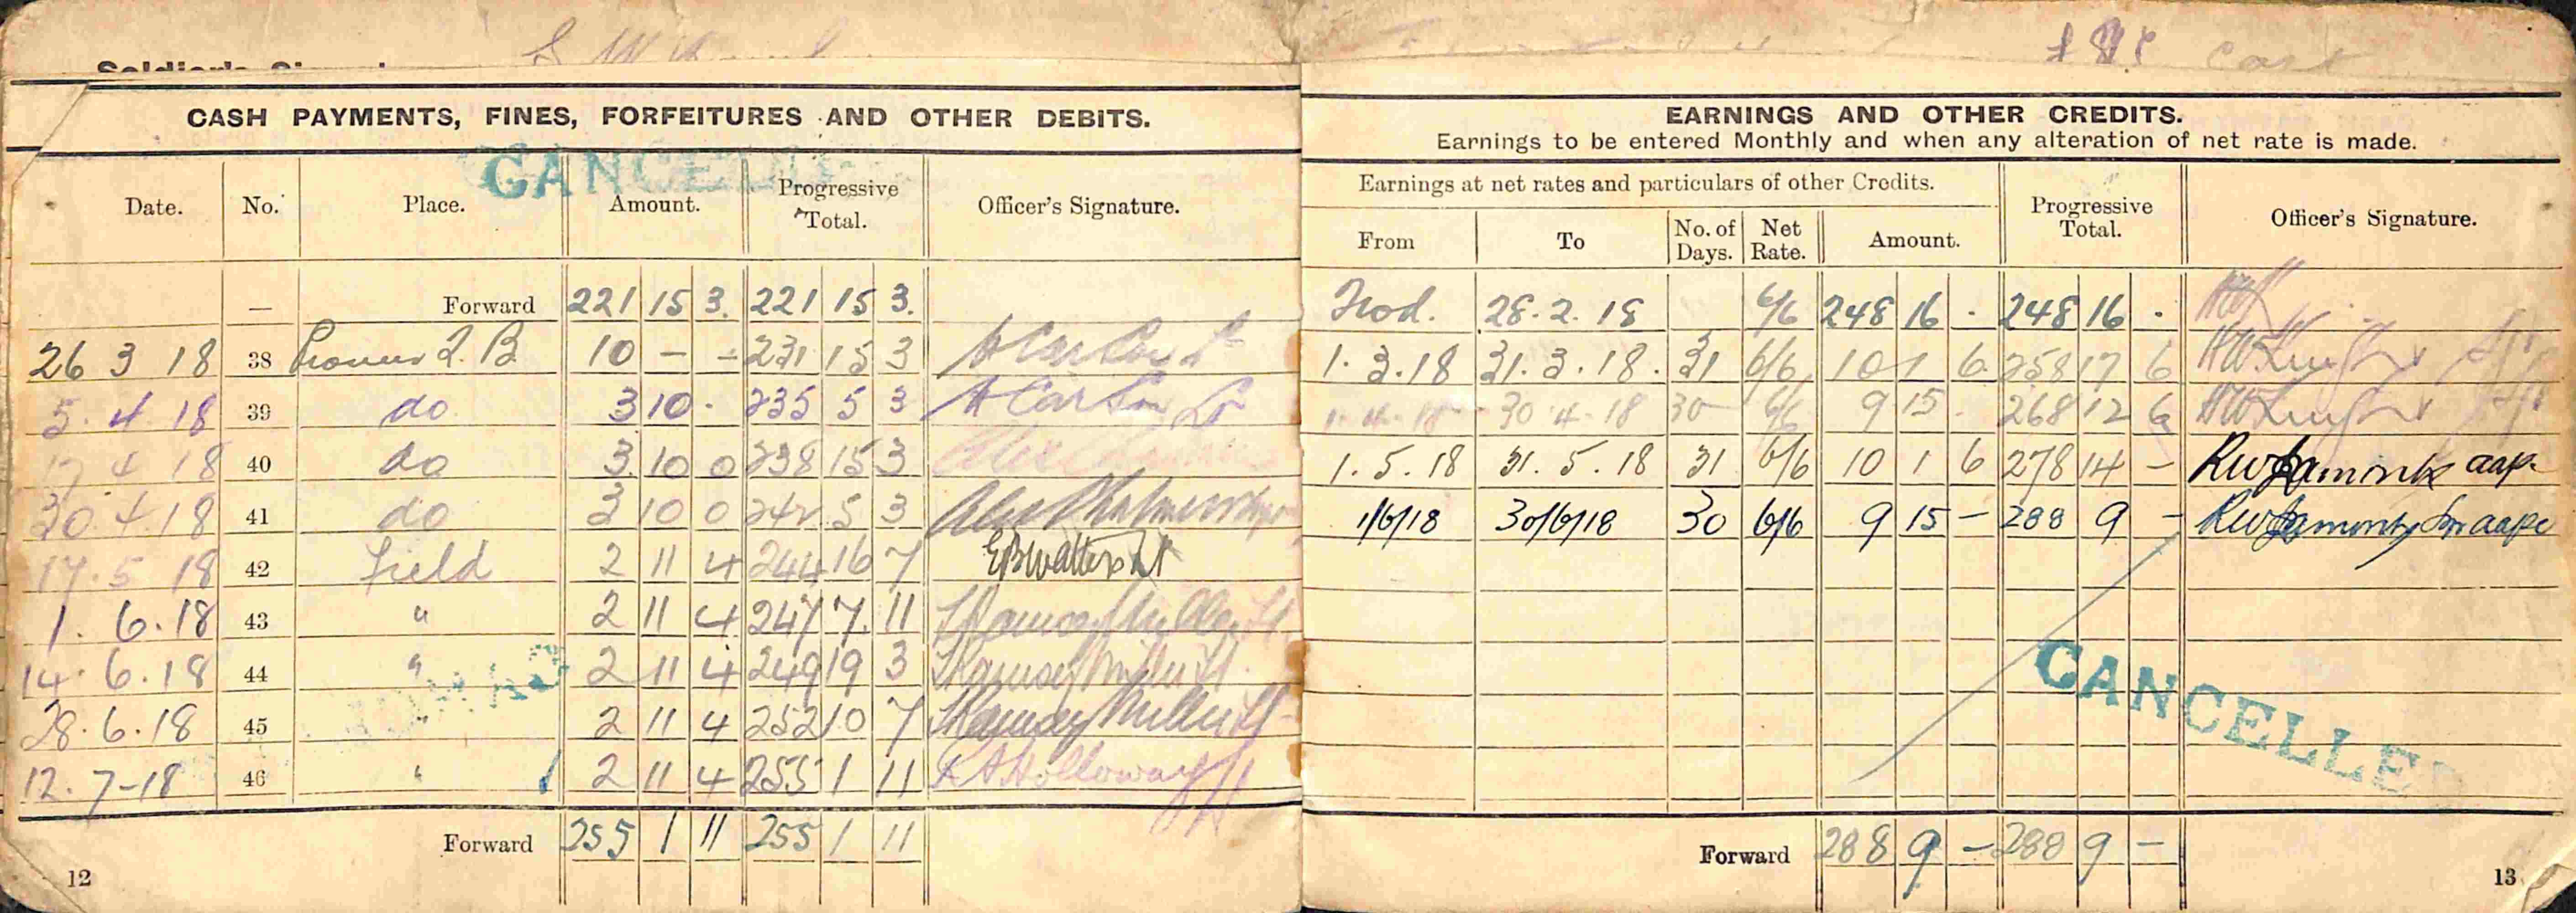 CASH PAYMENTS, FINES, FORFEITURES AND OTHER DEBITS.
CANCELLED
Date. No. Place. Amount. Progressive Total. Officer's Signature.
— Forward 221 15 3. 221 15 3.
26 3 18 38 10 – – 231 15 3
5. 4. 18 39 do 3 10 · 235 5 3
4 18 40 do 3. 10 0 238 15 3
30. 4. 18 41 do 3 10 0 242 5 3
17. 5 18 42 Field 2 11 4 244 16 7
1. 6. 18 43 " 2 11 4 247 7. 11
14. 6. 18 44 " 2 11 4 249 19 3
28. 6. 18 45 " 2 11 4 252 10 7
12. 7-18 46 " 2 11 4 255 1 11
Forward 255 1 11 255 1 11
12
EARNINGS AND OTHER CREDITS.
Earnings to be entered Monthly and when any alteration of net rate is made.
Earnings at net rates and particulars of other Credits. Progressive Total. Officer's Signature.
From To No. of Days. Net Rate. Amount.
Fwd. 28. 2. 18 6/6 248 16 · 248 16 ·
1. 3. 18 31. 3. 18. 31 6/6 10 1 6. 258 17 6
1. 4. 18 30 4. 18 30 6/6 9 15 . 268 12 6
1. 5. 18 31. 5. 18 31 6/6 10 1 6 278 14 –
1/6/18 30/6/18 30 6/6 9 15 – 288 9 –
CANCELLED
Forward 288 9 – 288 9 –
13